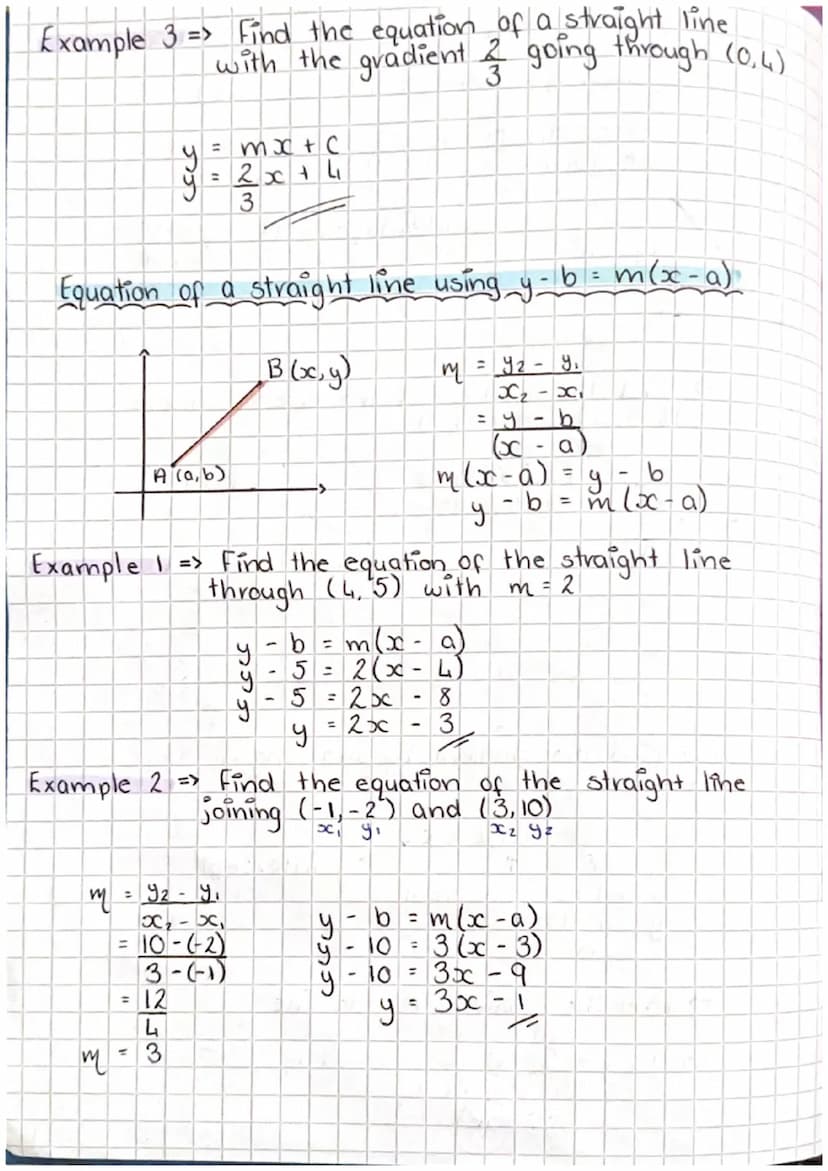 Example 3 => Find the equation of a straight line
with the gradient 2/3 going through (0,4)
y = mx + c
y = 2/3 x + 4
Equation of a straight line using y - b = m(x - a)
B (x, y)
A (a, b)
m = y₂ - y₁ / x₂ - x₁
= y - b / (x - a)
m(x - a) = y - b
y - b = m(x - a)
Example 1 => Find the equation of the straight line
through (4, 5) with m = 2
y - b = m(x - a)
y - 5 = 2(x - 4)
y - 5 = 2x - 8
y = 2x - 3
Example 2 => Find the equation of the straight line
joining (-1, -2) and (3, 10)
x₁ y₁ x₂ y₂
m = y₂ - y₁ / x₂ - x₁
= 10 - (-2) / 3 - (-1)
= 12/4
m = 3
y - b = m(x - a)
y - 10 = 3(x - 3)
y - 10 = 3x - 9
y = 3x - 1